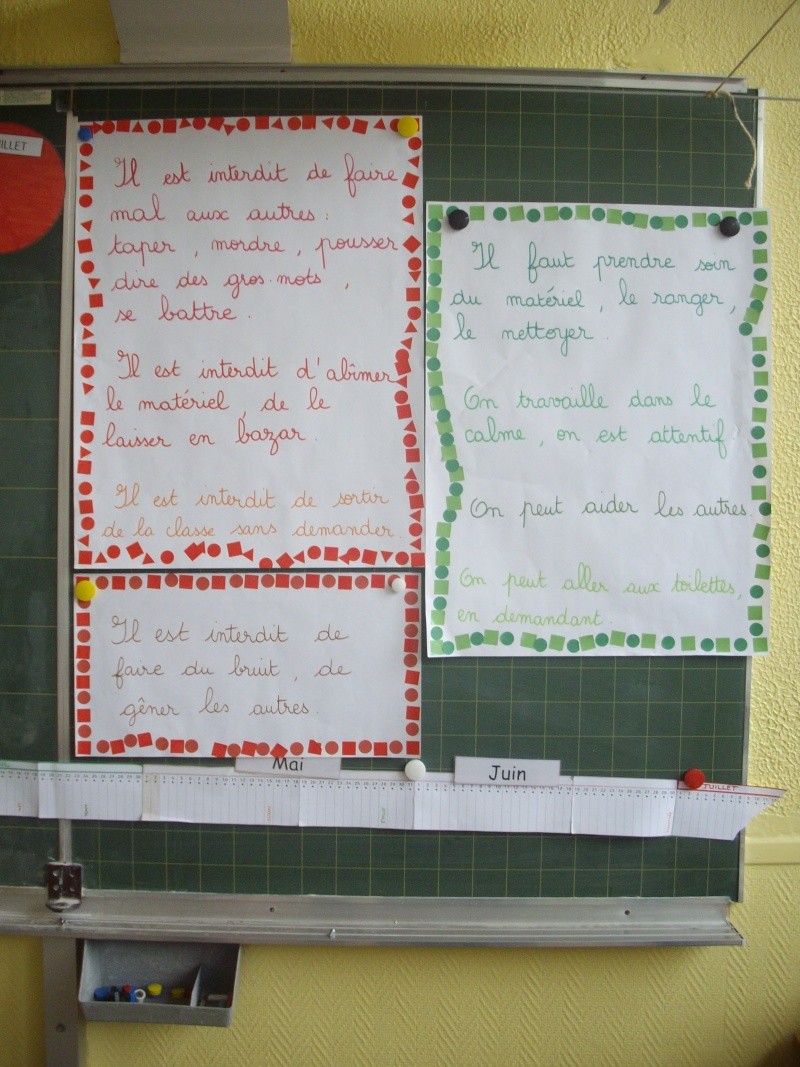 ILLET
Il est interdit de faire
mal aux autres :
taper , mordre , pousser
dire des gros mots ,
se battre .
Il est interdit d'abîmer
le matériel , de le
laisser en bazar .
Il est interdit de sortir
de la classe sans demander .
Il est interdit de
faire du bruit , de
gêner les autres .
Il faut prendre soin
du matériel , le ranger ,
le nettoyer .
On travaille dans le
calme , on est attentif
On peut aider les autres .
On peut aller aux toilettes ,
en demandant .
Mai
Juin
JUILLET